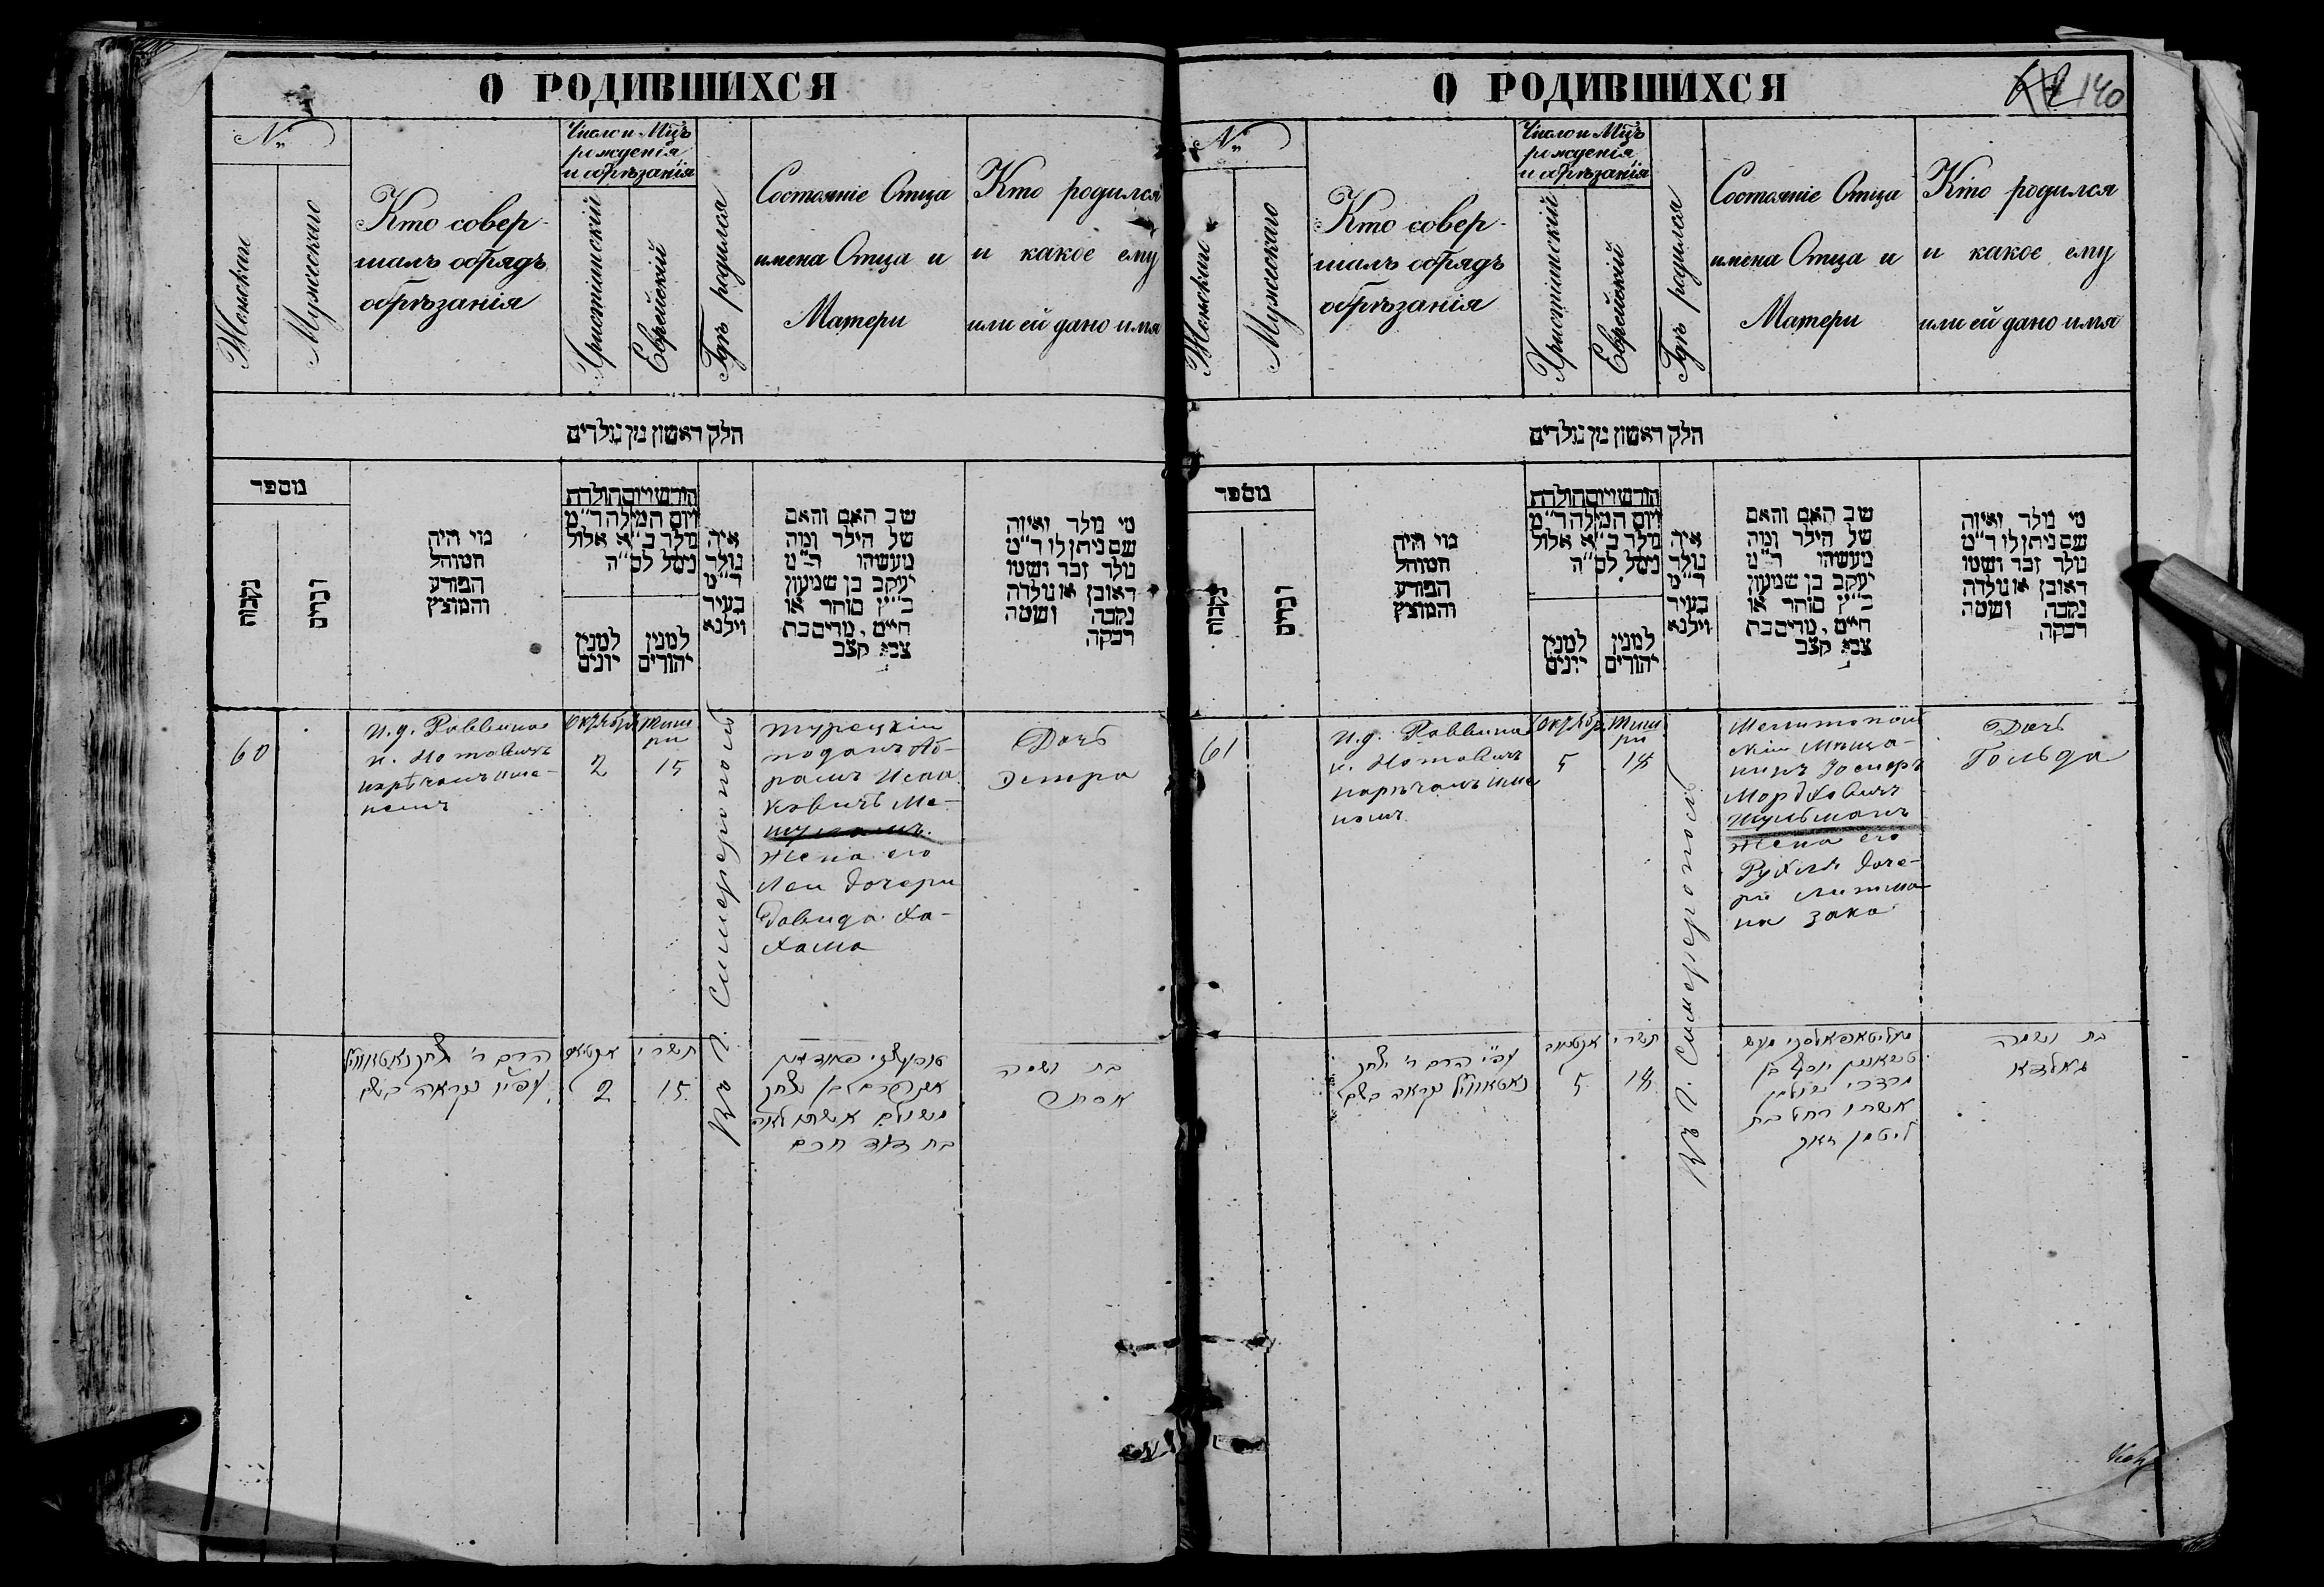 О РОДИВШИХСЯ
№
Женскаго
Мужескаго
Кто совер-
шалъ обрядъ
обрѣзанія
Число и Мцъ
рожденія
и обрѣзанія
Христіянскій
Еврейскій
Гдѣ родился
Состояніе Отца
имена Отца и
Матери
Кто родился
и какое ему
или ей дано имя
חלק ראשון מן נולדים
מספר
נקבות
זכרים
מי היה
המוהל
הפורע
והמוצץ
חודש ויום הולדת
ויום המילה ר״מ
נולד ב״א אלול
נימל לס״ה
למנין
יונים
למנין
יהודים
איה
נולד
ד״מ
בעיר
ווילנא
שב האם והאם
של הילד ומה
מעשהו ד״מ
יעקב בן שמעון
כ״ץ סוחר או
חיים, מרים בת
צבי קצב
מי נולד ואיזה
שם ניתן לו ד״מ
נולד זכר ושמו
ראובן או נולדה
נקבה ושמה
רבקה
60
И.д. Раввина
н. Нотовичъ
нарѣчамъ име-
немъ
Октябр
2
Тиш
ри
15
Въ г. Симферополѣ
Турецкій
поданъ Аб-
рамъ Исаа
ковичъ Ме-
Жена его
Леи дочери
Давида Ха-
хама
Дочь
Эстра
2
תשרי
15
בת דוד חכם
בת ושמה
О РОДИВШИХСЯ
140
№
Женскаго
Мужескаго
Кто совер-
шалъ обрядъ
обрѣзанія
Число и Мцъ
рожденія
и обрѣзанія
Христіянскій
Еврейскій
Гдѣ родился
Состояніе Отца
имена Отца и
Матери
Кто родился
и какое ему
или ей дано имя
חלק ראשון מן נולדים
מספר
נקבות
זכרים
מי היה
המוהל
הפורע
והמוצץ
חודש ויום הולדת
ויום המילה ר״מ
נולד ב״א אלול
נימל לס״ה
למנין
יונים
למנין
יהודים
איה
נולד
ד״מ
בעיר
ווילנא
שב האם והאם
של הילד ומה
מעשהו ד״מ
יעקב בן שמעון
כ״ץ סוחר או
חיים, מרים בת
צבי קצב
מי נולד ואיזה
שם ניתן לו ד״מ
נולד זכר ושמו
ראובן או נולדה
נקבה ושמה
רבקה
61
И.д. Раввина
н. Нотовичъ
нарѣчамъ име
немъ
Октябр.
5
Тиш
ри
18
Въ г. Симферополѣ
Мелитополь
скій Мѣща-
нинъ Іосифъ
Мордковичъ
Шульманъ
Жена его
Рухля доче-
ри Литма
на Зака
Дочь
Гольда
5
תשרי
18
מרדכי שולמן
אשתו רחל בת
ליטמן זאק
בת ושמה
גאלדא